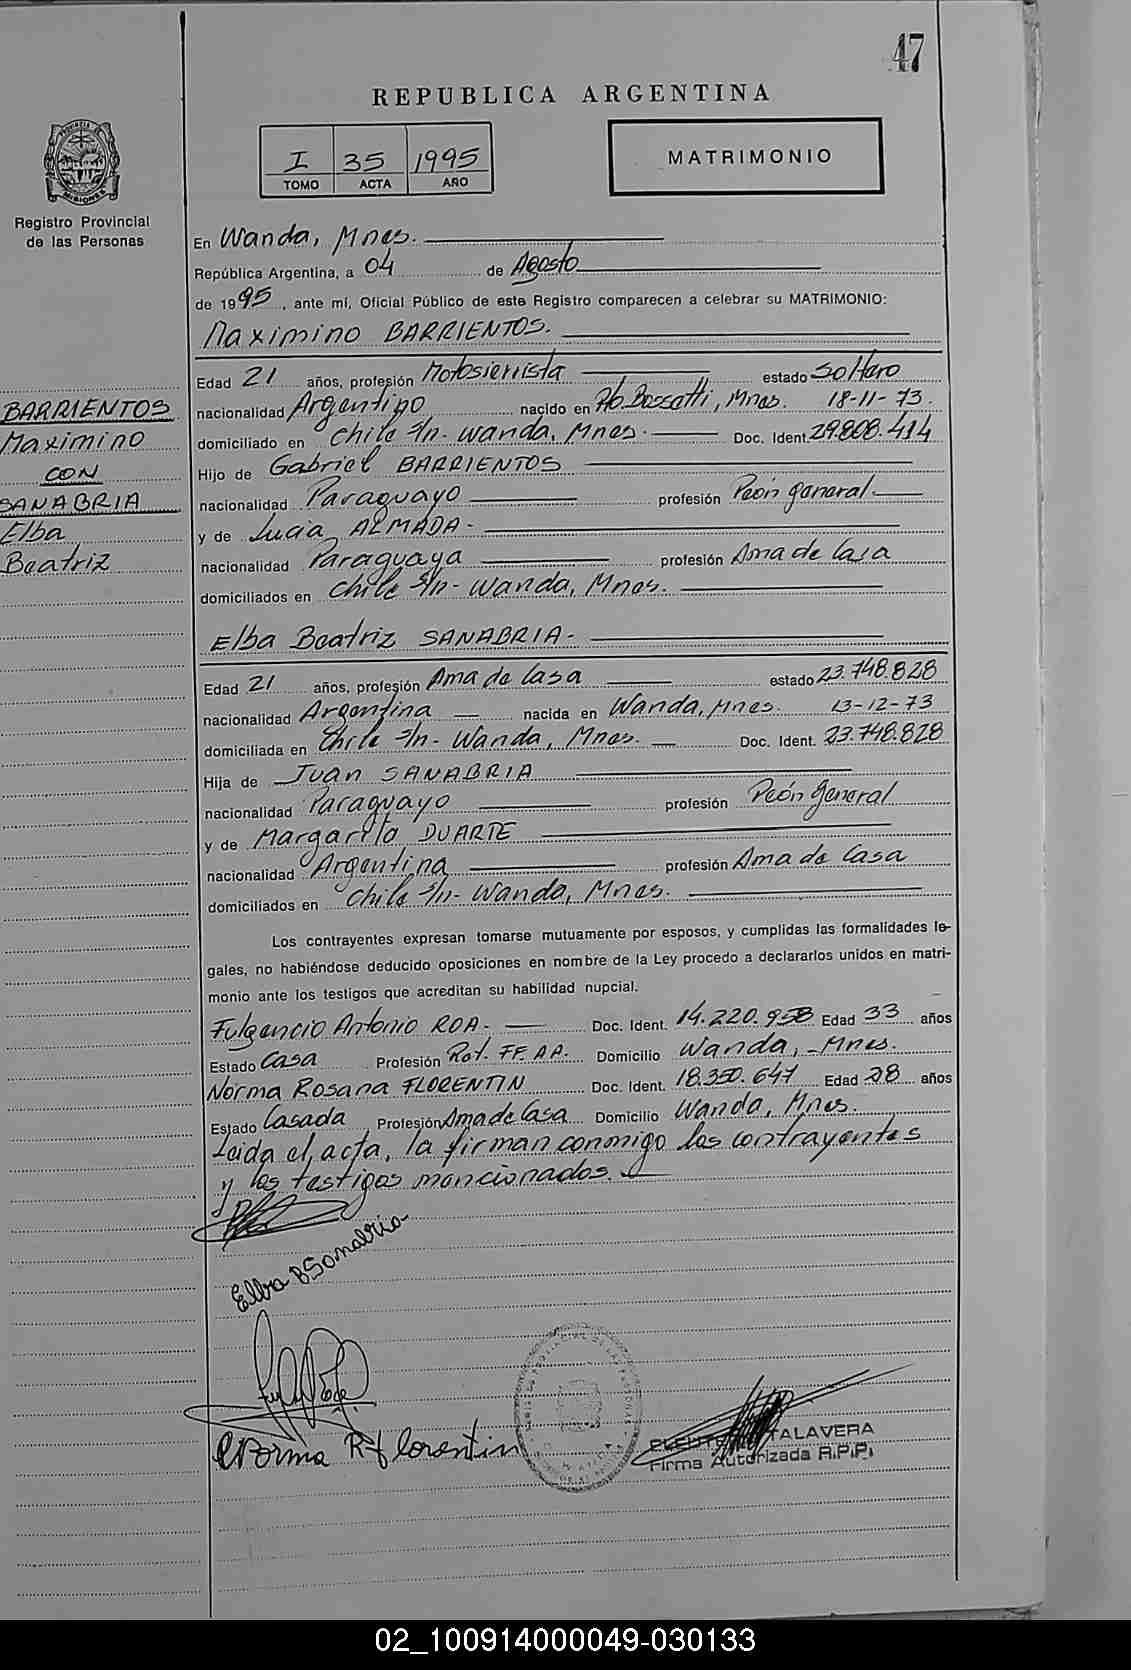 47
REPUBLICA ARGENTINA
I 35 1995
TOMO ACTA AÑO
MATRIMONIO
PROVINCIA DE MISIONES
Registro Provincial
de las Personas
BARRIENTOS
Maximino
CON
SANABRIA
Elba
Beatriz
En Wanda, Mnes.
República Argentina, a 04 de Agosto
de 1995, ante mí, Oficial Público de este Registro comparecen a celebrar su MATRIMONIO:
Maximino BARRIENTOS.
Edad 21 años, profesión Motosierrista estado Soltero
nacionalidad Argentino nacido en Pto. Bossetti, Mnes. 18-11-73.
domiciliado en Chile s/n- Wanda, Mnes. Doc. Ident. 29.808.414
Hijo de Gabriel BARRIENTOS
nacionalidad Paraguayo profesión Peón general.
y de Lucia ALMADA-
nacionalidad Paraguaya profesión Ama de Casa
domiciliados en Chile s/n- Wanda, Mnes.
Elba Beatriz SANABRIA-
Edad 21 años, profesión Ama de Casa estado 23.748.828
nacionalidad Argentina nacida en Wanda, Mnes. 13-12-73
domiciliada en Chile s/n- Wanda, Mnes. Doc. Ident. 23.748.828
Hija de Juan SANABRIA
nacionalidad Paraguayo profesión Peón general
y de Margarita DUARTE
nacionalidad Argentina profesión Ama de Casa
domiciliados en Chile s/n- Wanda, Mnes.
Los contrayentes expresan tomarse mutuamente por esposos, y cumplidas las formalidades le-
gales, no habiéndose deducido oposiciones en nombre de la Ley procedo a declararlos unidos en matri-
monio ante los testigos que acreditan su habilidad nupcial.
Fulgencio Antonio ROA- Doc. Ident. 14.220.958 Edad 33 años
Estado Casa Profesión Ret. FF. AA. Domicilio Wanda, Mnes.
Norma Rosana FLORENTIN Doc. Ident. 18.350.647 Edad 28 años
Estado Casada Profesión Ama de Casa Domicilio Wanda, Mnes.
Leida el acta, la firman conmigo los contrayentes
y los testigos mencionados.
Elba B Sanabria
Norma R Florentin
TALAVERA
Firma Autorizada R.P.P.
02_100914000049-030133